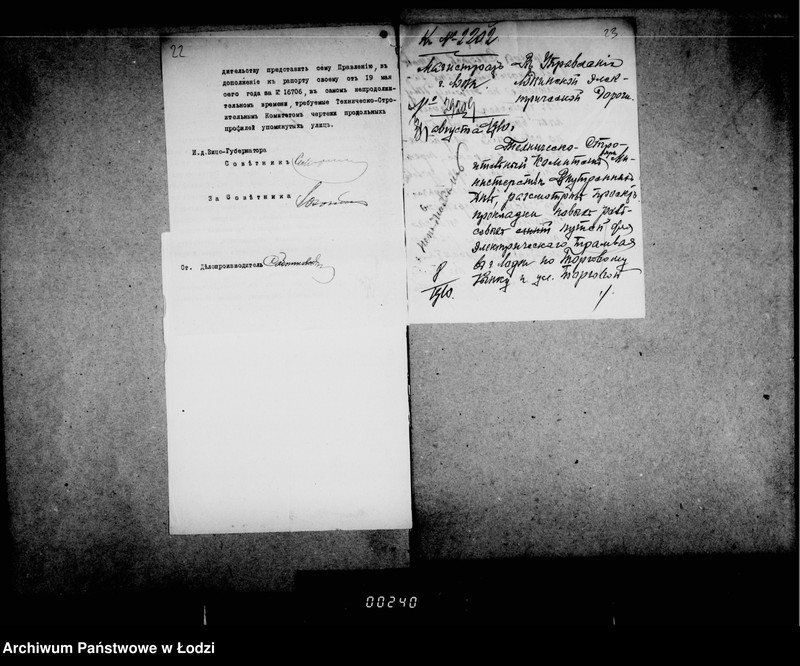 22
дительству представить сему Правленію, въ
дополненіе къ рапорту своему отъ 19 мая
сего года за № 16706, въ самомъ непродолжи-
тельномъ времени, требуемые Техническо-Стро-
ительнымъ Комитетомъ чертежи продольныхъ
профилей упомянутыхъ улицъ.
И.д.Вице-Губернатора
Совѣтникъ
За Совѣтника
Ст. Дѣлопроизводитель
23
К № 2202
Магистратъ
г. Лодзи.
Въ Управленіе
Лодзинской Элек-
трической Дороги.
августа 1910 г.
Техническо-Стро-
ительный Комитетъ Ми-
нистерства Внутреннихъ
Дѣлъ, разсмотрѣвъ проектъ
прокладки новыхъ рель-
совыхъ путей для
электрическаго трамвая
въ г. Лодзи по Торговому
Рынку и ул. Торговой
./.
00240
Archiwum Państwowe w Łodzi